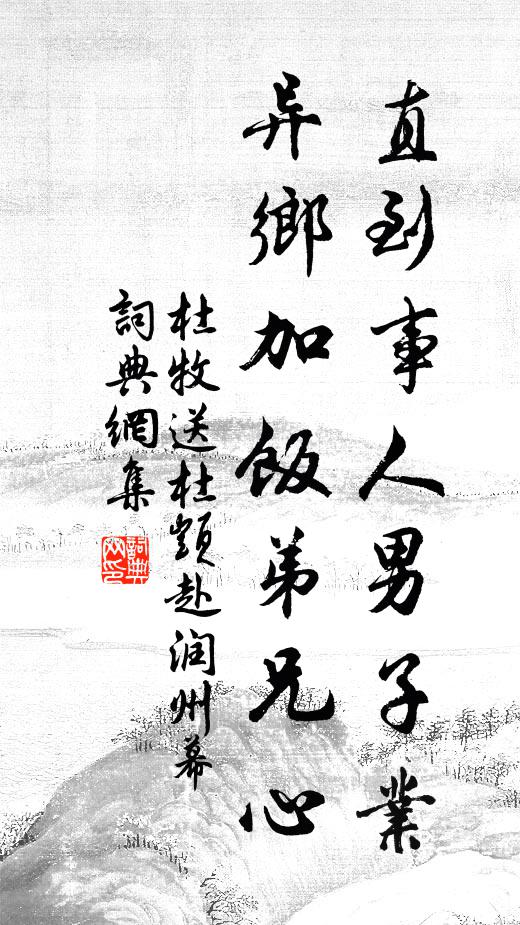 直到事人男子業
异鄉加飯弟兄心
杜牧送杜顗赴润州幕
詞典網集
詞典网印